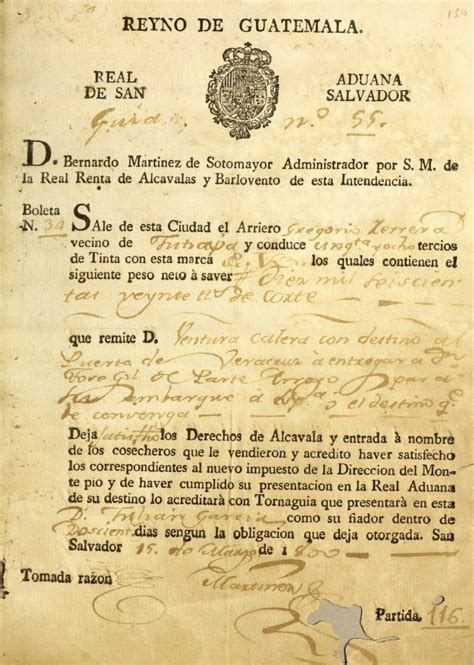 150
REYNO DE GUATEMALA.
REAL ADUANA
DE SAN SALVADOR
Guia nº 55.
D. Bernardo Martinez de Sotomayor Administrador por S. M. de
la Real Renta de Alcavalas y Barlovento de esta Intendencia.
Boleta
N. 34 SAle de esta Ciudad el Arriero Gregorio Herrera
vecino de y conduce tercios
de Tinta con esta marca los quales contienen el
siguiente peso neto à saver Diez mil seiscien
tas veynte de corte
que remite D. Ventura Calera con destino al
Puerto de Veracruz à entregar à Dn
Gil de Parte Arroyo para
su embarque à o el destino qe
le convenga
Deja satisfhos los Derechos de Alcavala y entrada à nombre
de los cosecheros que le vendieron y acredito haver satisfecho
los correspondientes al nuevo impuesto de la Direccion del Mon-
te pio y de haver cumplido su presentacion en la Real Aduana
de su destino lo acreditarà con Tornaguia que presentarà en esta
D. Julian Garcia como su fiador dentro de
Doscientos dias sengun la obligacion que deja otorgada. San
Salvador 15 de Marzo de 1800
Tomada razon Martinez
Partida 116.